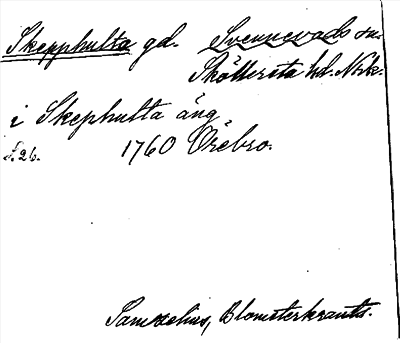 Skepphulta gd. Svennevads sn.
Sköllersta hd. Nrk.
i Skephulta äng
s. 26. 1760 Örebro.
Samzelius, Blomsterkrants.